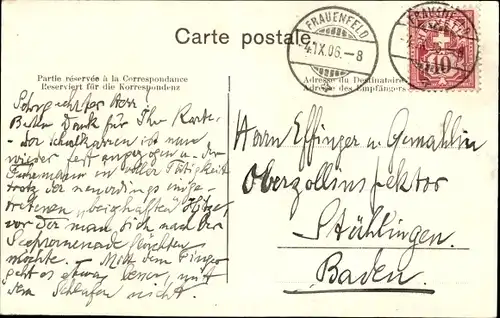 Carte postale.
FRAUENFELD
4.IX.06.-8
FRAUENFELD
10
Partie réservée à la Correspondance
Reserviert für die Korrespondenz
Adresse du Destinataire
Adresse des Empfängers
Sehr geehrter Herr!
Besten Dank für Ihre Karte.
der Schulkarren ist nun
wieder fest angezogen u. der
in voller Tätigkeit
trotz der neuerdings einge-
tretenen Hitze,
vor der man sich nach der
Seepromenade flüchten
möchte. - Mit dem Finger
geht es etwas besser, mit
dem Schlafen nicht.
Herrn Effinger u. Gemahlin
Oberzollinspektor
Stühlingen.
Baden.